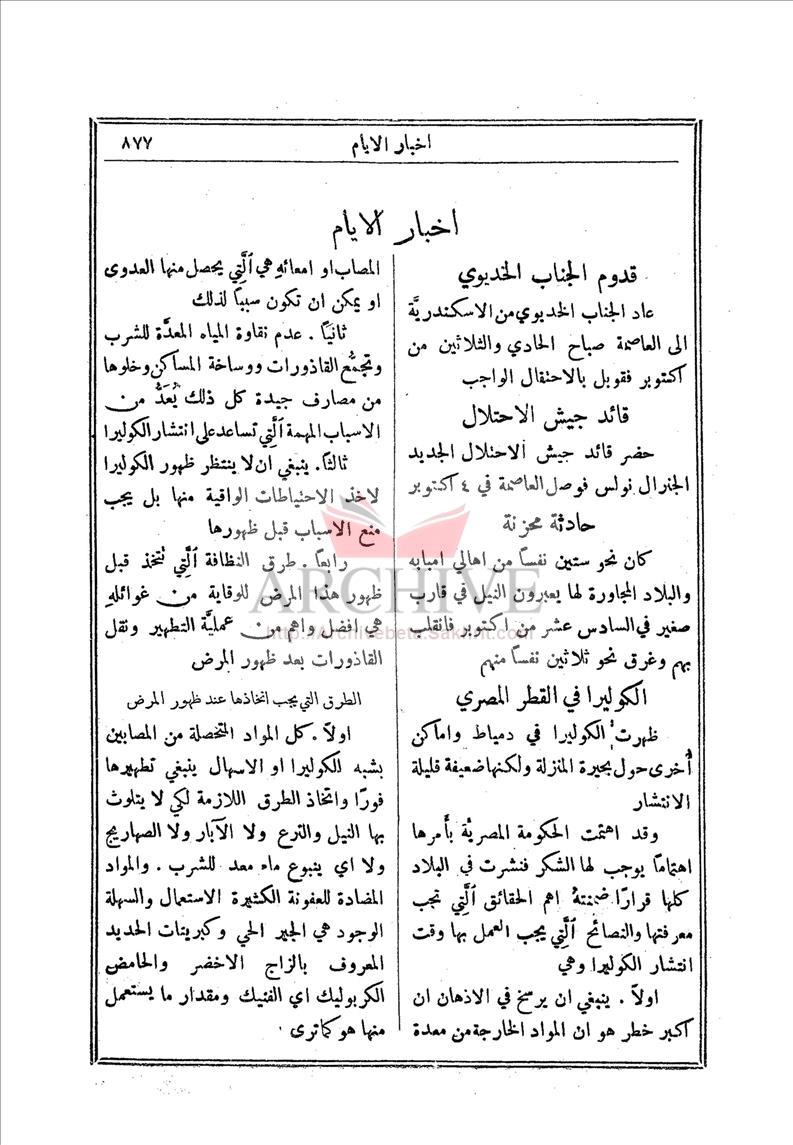 اخبار الايام
٨٧٧
اخبار الايام
قدوم الجناب الخديوي
عاد الجناب الخديوي من الاسكندريَّة
الى العاصمة صباح الحادي والثلاثين من
اكتوبر فقوبل بالاحتفال الواجب
قائد جيش الاحتلال
حضر قائد جيش الاحتلال الجديد
الجنرال نولس فوصل العاصمة في ٤ اكتوبر
حادثة محزنة
كان نحو ستين نفسًا من اهالي امبابه
والبلاد المجاورة لها يعبرون النيل في قارب
صغير في السادس عشر من اكتوبر فانقلب
بهم وغرق نحو ثلاثين نفسًا منهم
الكوليرا في القطر المصري
ظهرت الكوليرا في دمياط واماكن
أُخرى حول بحيرة المنزلة ولكنها ضعيفة قليلة
الانتشار
وقد اهتمت الحكومة المصريَّة بأمرها
اهتمامًا يوجب لها الشكر فنشرت في البلاد
كلها قرارًا ضمنتهُ اهم الحقائق الَّتي تجب
معرفتها والنصائح الَّتي يجب العمل بها وقت
انتشار الكوليرا وهي
اولاً . ينبغي ان يرسخ في الاذهان ان
اكبر خطر هو ان المواد الخارجة من معدة
المصاب او امعائهِ هي الَّتي يحصل منها العدوى
او يمكن ان تكون سببًا لذلك
ثانيًا . عدم نقاوة المياه المعدَّة للشرب
وتجمُّع القاذورات ووساخة المساكن وخلوها
من مصارف جيدة كل ذلك يُعَدُّ من
الاسباب المهمة الَّتي تساعد على انتشار الكوليرا
ثالثًا. ينبغي ان لا ينتظر ظهور الكوليرا
لاخذ الاحتياطات الواقية منها بل يجب
منع الاسباب قبل ظهورها
رابعًا . طرق النظافة الَّتي تُتخذ قبل
ظهور هذا المرض للوقاية من غوائلهِ
هي افضل واهم من عمليَّة التطهير ونقل
القاذورات بعد ظهور المرض
الطرق التي يجب اتخاذها عند ظهور المرض
اولاً . كل المواد المتحصلة من المصابين
بشبه الكوليرا او الاسهال ينبغي تطهيرها
فورًا واتخاذ الطرق اللازمة لكي لا يتلوث
بها النيل والترع ولا الآبار ولا الصهاريج
ولا اي ينبوع ماء معد للشرب . والمواد
المضادة للعفونة الكثيرة الاستعمال والسهلة
الوجود هي الجير الحي وكبريتات الحديد
المعروف بالزاج الاخضر والحامض
الكربوليك اي الفنيك ومقدار ما يستعمل
منها هو كما ترى .
ARCHIVE
http://Archivebeta.Sakhrit.com